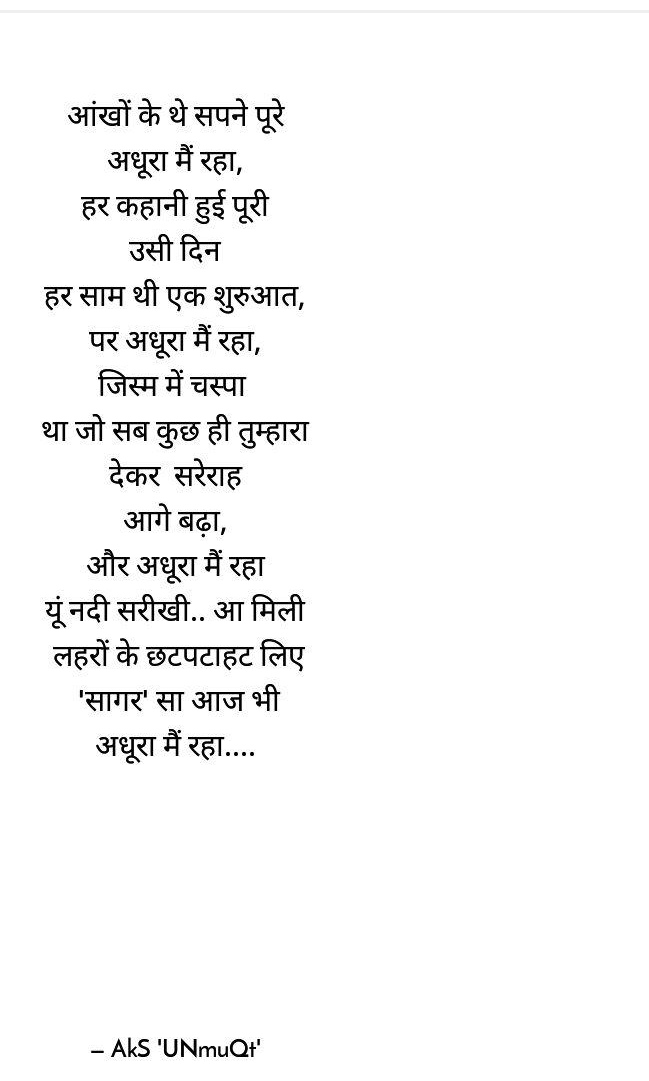 आंखों के थे सपने पूरे
अधूरा मैं रहा,
हर कहानी हुई पूरी
उसी दिन
हर साम थी एक शुरुआत,
पर अधूरा मैं रहा,
जिस्म में चस्पा
था जो सब कुछ ही तुम्हारा
देकर  सरेराह
आगे बढ़ा,
और अधूरा मैं रहा
यूं नदी सरीखी.. आ मिली
लहरों के छटपटाहट लिए
'सागर' सा आज भी
अधूरा मैं रहा....
– AkS 'UNmuQt'